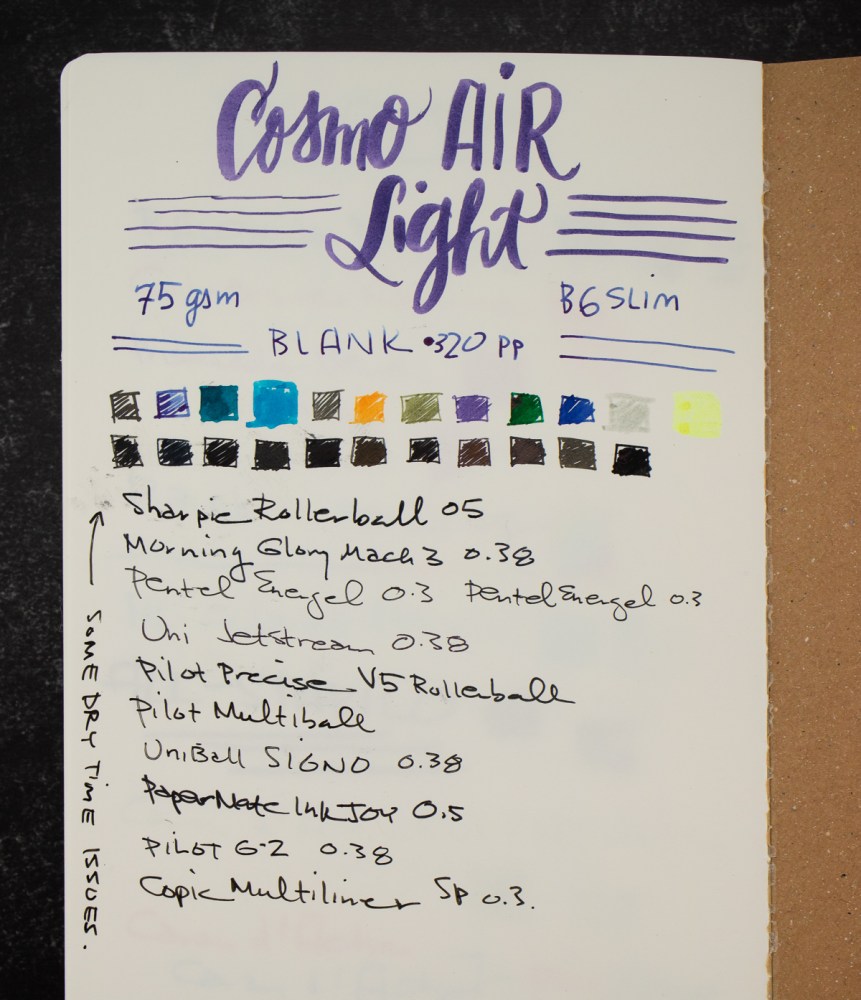 Cosmo AIR
Light
75 gsm
B6 SLIM
BLANK • 320 PP
Sharpie Rollerball 05
Morning Glory Mach 3 0.38
Pentel Energel 0.3 Pentel Energel 0.3
Uni Jetstream 0.38
Pilot Precise V5 Rollerball
Pilot Multiball
UniBall SIGNO 0.38
PaperMate InkJoy 0.5
PILOT G-2 0.38
Copic Multiliner SP 0.3.
SOME DRY TIME ISSUES.